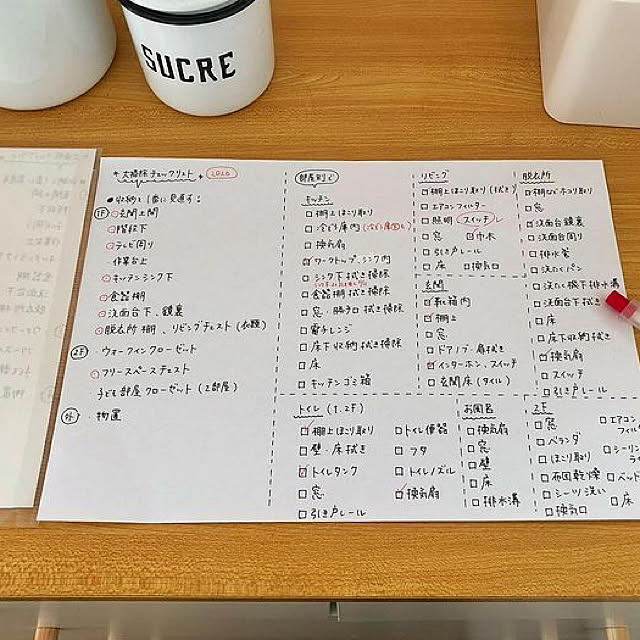 SUCRE
大掃除チェックリスト 2020
●収納も1番に見直す!
1F 玄関土間
階段下
テレビ周り
作業台上
キッチンシンク下
食器棚
洗面台下、鏡裏
脱衣所棚、リビングチェスト(衣類)
2F ・ウォークインクローゼット
フリースペースチェスト
子ども部屋クローゼット(2部屋)
外 ・物置
部屋別で
キッチン
□棚上ほこり取り
□冷ぞう庫内(冷ぞう庫図も)
□換気扇
□ワークトップ、シンク内
□シンク下拭き掃除
□食器棚拭き掃除
□窓・勝手口拭き掃除
□電子レンジ
□床下収納拭き掃除
□床
□キッチンゴミ箱
リビング
□棚上ほこり取り(拭き)
□エアコンフィルター
□照明 スイッチ
□窓 □巾木
□引き戸レール
□床 □換気口
玄関
□靴箱内
□棚上
□窓
□ドアノブ・扉拭き
□インターホン、スイッチ
□玄関床(タイル)
脱衣所
□棚などホコリ取り
□窓
□洗面台鏡裏
□洗面台周り
□排水管
□洗たくパン
□洗たく機下排水溝
□洗面台下拭き
□床
□床下収納拭き
□換気扇
□スイッチ
□引き戸レール
トイレ(1.2F)
□棚上ほこり取り □トイレ便器
□壁・床拭き □フタ
□トイレタンク □トイレノズル
□窓 □換気扇
□引き戸レール
お風呂
□換気扇
□窓
□壁
□床
□排水溝
2F
□窓 □エアコン
フィル
□ベランダ
□ほこり取り □シーリン
ライ
□布団乾燥 □ベッド
□シーツ洗い
□換気口 □床